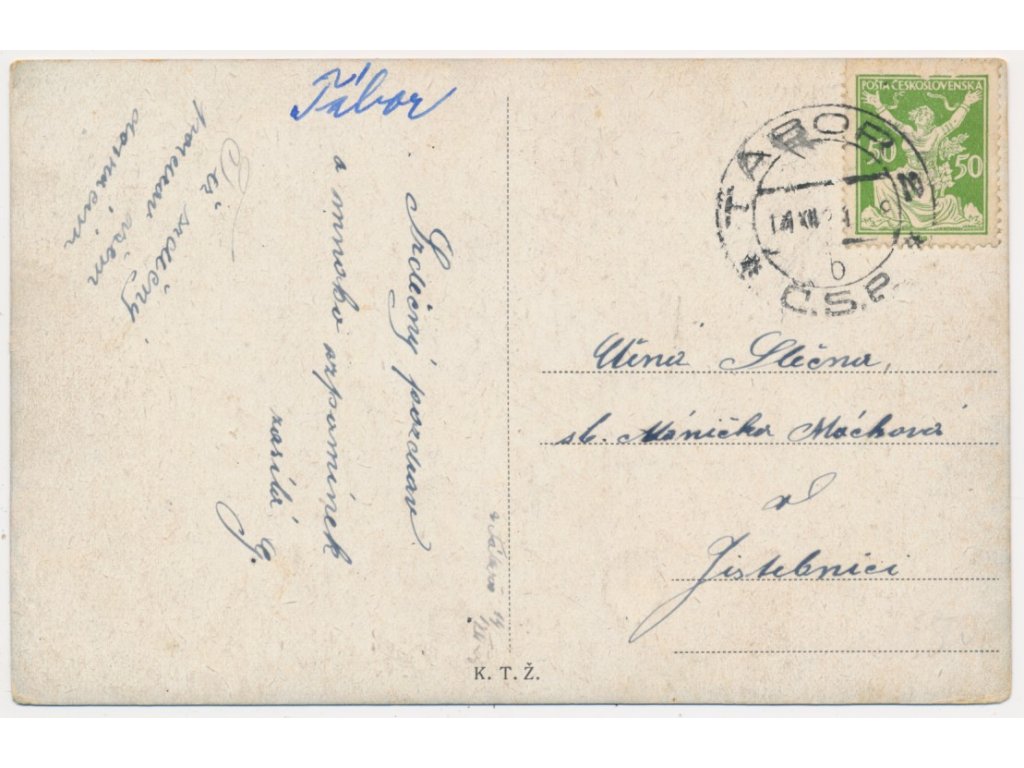 Tábor
Srdečný pozdrav
a mnoho vzpomínek
zasílá
G.
srdečný
pozdrav všem
domácím
14
XII
K. T. Ž.
POŠTA ČESKOSLOVENSKÁ
50 50
TABOR 2
14 XII 21
b
Č.S.P.
Ctěná Slečna,
sl. Mánička Máchová
v
Jistebnici